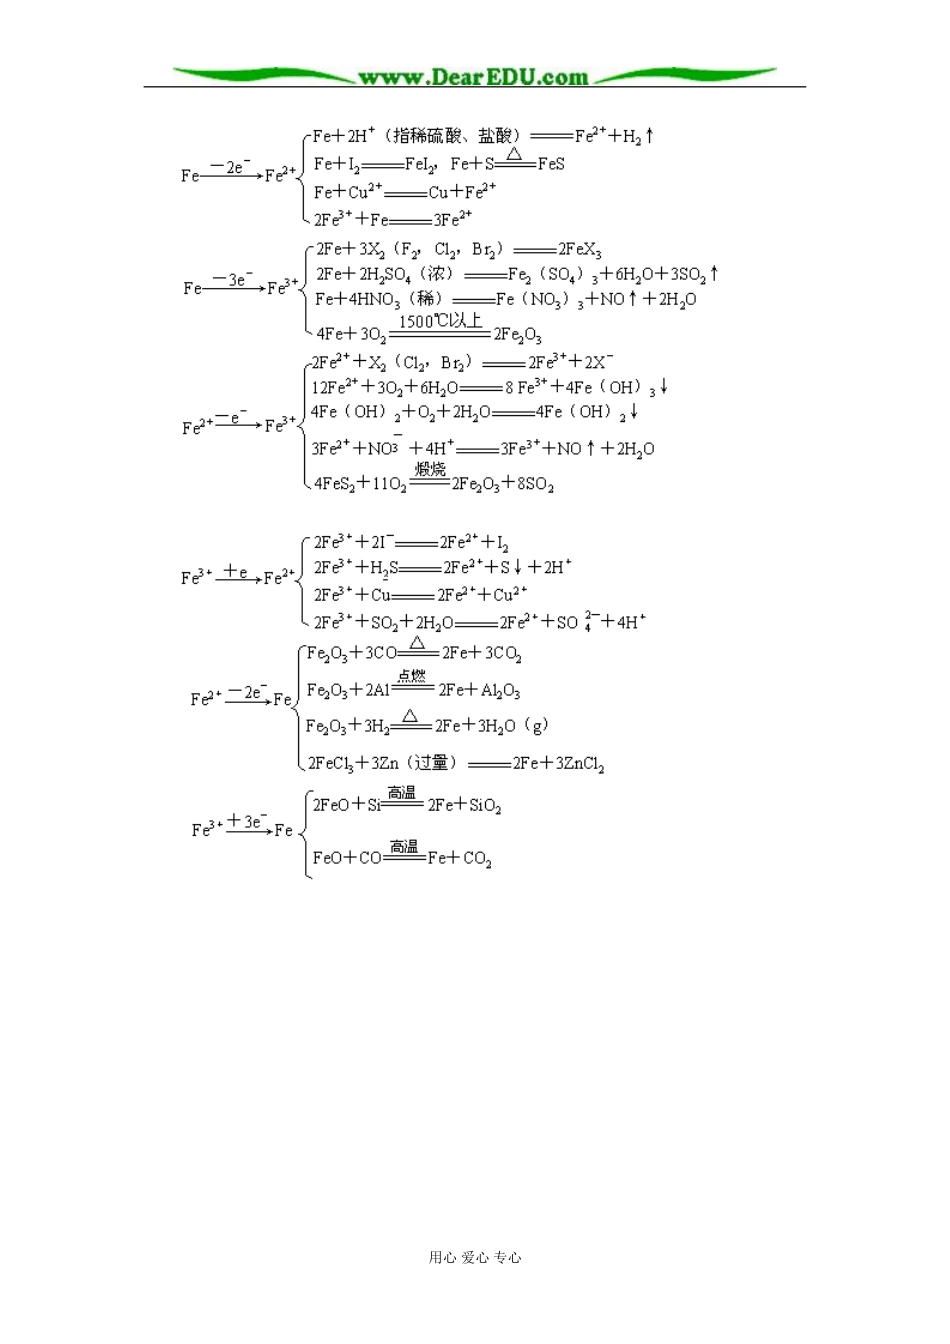 www.DearEDU.com
Fe+2H⁺（指稀硫酸、盐酸）══Fe²⁺+H₂↑
Fe —−2e⁻→ Fe²⁺ Fe+I₂══FeI₂，Fe+S══△══FeS
Fe+Cu²⁺══Cu+Fe²⁺
2Fe³⁺+Fe══3Fe²⁺
2Fe+3X₂（F₂，Cl₂，Br₂）══2FeX₃
Fe —−3e⁻→ Fe³⁺ 2Fe+2H₂SO₄（浓）══Fe₂（SO₄）₃+6H₂O+3SO₂↑
Fe+4HNO₃（稀）══Fe（NO₃）₃+NO↑+2H₂O
4Fe+3O₂══1500℃以上══2Fe₂O₃
2Fe²⁺+X₂（Cl₂，Br₂）══2Fe³⁺+2X⁻
12Fe²⁺+3O₂+6H₂O══8 Fe³⁺+4Fe（OH）₃↓
Fe²⁺ —−e⁻→ Fe³⁺ 4Fe（OH）₂+O₂+2H₂O══4Fe（OH）₂↓
3Fe²⁺+NO₃⁻+4H⁺══3Fe³⁺+NO↑+2H₂O
4FeS₂+11O₂══煅烧══2Fe₂O₃+8SO₂
2Fe³⁺+2I⁻══2Fe²⁺+I₂
Fe³⁺ —+e→ Fe²⁺ 2Fe³⁺+H₂S══2Fe²⁺+S↓+2H⁺
2Fe³⁺+Cu══2Fe²⁺+Cu²⁺
2Fe³⁺+SO₂+2H₂O══2Fe²⁺+SO₄²⁻+4H⁺
Fe₂O₃+3CO══△══2Fe+3CO₂
Fe²⁺ —−2e⁻→ Fe Fe₂O₃+2Al══点燃══2Fe+Al₂O₃
Fe₂O₃+3H₂══△══2Fe+3H₂O（g）
2FeCl₃+3Zn（过量）══2Fe+3ZnCl₂
Fe³⁺ —+3e⁻→ Fe 2FeO+Si══高温══2Fe+SiO₂
FeO+CO══高温══Fe+CO₂
用心 爱心 专心